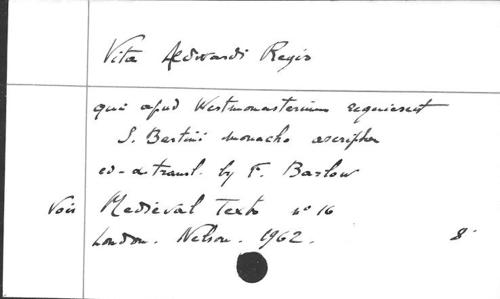 Vita Aedwardi Regis
qui apud Westmonasterium requiescit
S. Bertini monacho ascripta
ed. a. transl. by F. Barlow
Voir Medieval Texts n° 16
London. Nelson. 1962. 8°